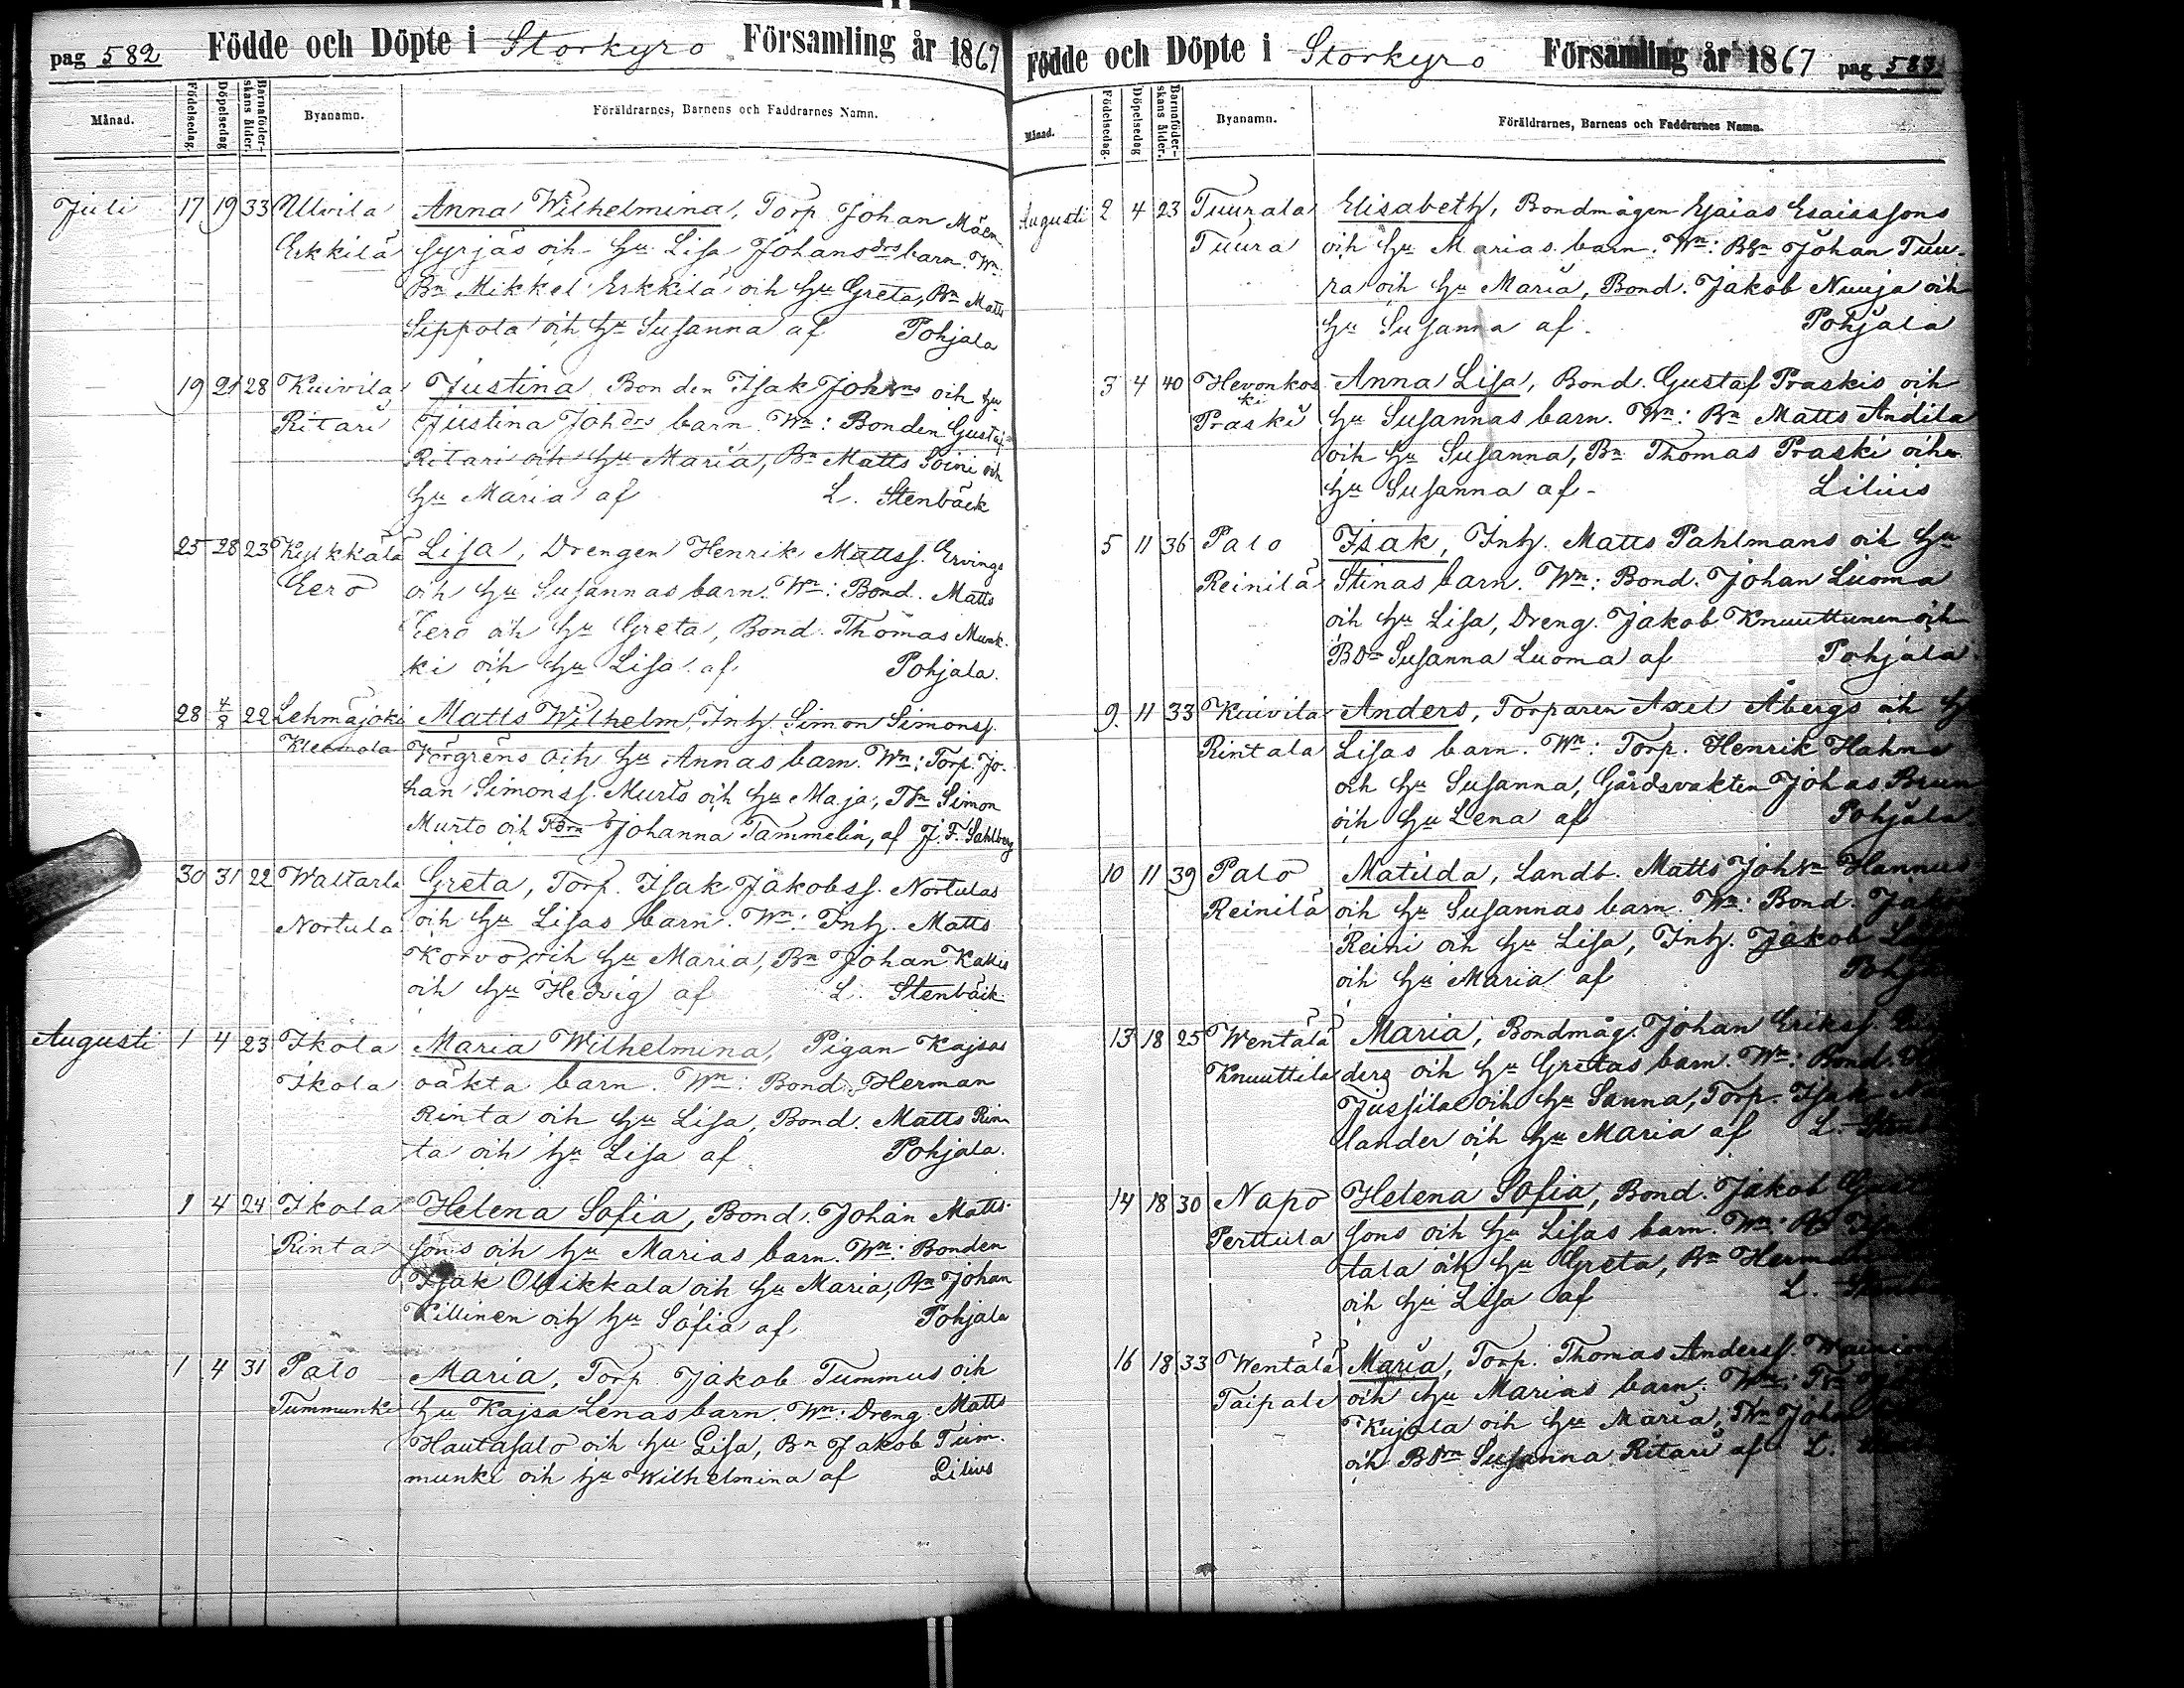 pag 582 Födde och Döpte i Storkyro Församling år 1867
Månad. Födelsedag. Döpelsedag Barnaföder-skans ålder. Byanamn. Föräldrarnes, Barnens och Faddrarnes Namn.
Juli 17 19 33 Ulvila Anna Wilhelmina, Torp Johan Mäen
Erkkilä syrjäs och hu Lisa Johansdrs barn. Wn:
Bn Mikkel Erkkilä och hu Greta, Bn Matts
Seppola och hu Susanna af Pohjala
19 21 28 Kuivila Justina Bonden Isak Johns och hu
Ritari Justina Johdrs barn. Wn: Bonden Gustaf
Ritari och hu Maria, Bn Matts Soini och
hu Maria af L. Stenbäck
25 28 23 Kylkkälä Lisa, Drengen Henrik Mattss. Ervings
Eero och hu Susannas barn. Wn: Bond. Matts
Eero och hu Greta, Bond. Thomas Munk-
ki och hu Lisa af Pohjala.
28 4/8 22 Lehmäjoki Matts Wilhelm, Inh. Simon Simonss.
Kleemola Törgrens och hu Annas barn. Wn: Torp. Jo-
han Simonss. Murto och hu Maja, Tsn Simon
Murto och Johanna Tammelin, af J. F. Sahlberg
30 31 22 Waltarla Greta, Torp. Isak Jakobss. Nortulas
Nortula och hu Lisas barn. Wn: Inh. Matts
Korvo och hu Maria, Bn Johan Kallis
och hu Hedvig af L. Stenbäck
Augusti 1 4 23 Ikola Maria Wilhelmina, Pigan Kajsas
Ikola oäkta barn. Wn: Bond. Herman
Rinta och hu Lisa, Bond. Matts Rin-
ta och hu Lisa af Pohjala.
1 4 24 Ikola Helena Sofia, Bond. Johan Matts-
Rinta sons och hu Marias barn. Wn: Bonden
Isak Ollikkala och hu Maria, Bn Johan
Killinen och hu Sofia af Pohjala
1 4 31 Palo Maria, Torp Jakob Tummus och
Tummunki hu Kajsa Lenas barn. Wn: Dreng Matts
Hautasalo och hu Lisa, Bn Jakob Tum-
munki och hu Wilhelmina af Lilius
Födde och Döpte i Storkyro Församling år 1867 pag 583
Månad. Födelsedag. Döpelsedag Barnaföder-skans ålder. Byanamn. Föräldrarnes, Barnens och Faddrarnes Namn.
Augusti 2 4 23 Tuurala Elisabeth, Bondmågen Esaias Esaiassons
Tuura och hu Marias barn. Wn: Bsn Johan Tuu-
ra och hu Maria, Bond. Jakob Nuuja och
hu Susanna af Pohjala
3 4 40 Hevonkos Anna Lisa, Bond. Gustaf Praskis och
ki
Praski hu Susannas barn. Wn: Bn Matts Andila
och hu Susanna, Bn Thomas Praski och
hu Susanna af Lilius
5 11 36 Palo Isak, Inh. Matts Pahlmans och hu
Reinilä Stinas barn. Wn: Bond. Johan Luoma
och hu Lisa, Dreng. Jakob Knuuttunen och
Bdn Susanna Luoma af Pohjala
9 11 33 Kuivila Anders, Torparen Axel Åbergs och hu
Rintala Lisas barn. Wn: Torp. Henrik Hahne
och hu Susanna, Gårdsvakten Johas Brun
och hu Lena af Pohjala
10 11 39 Palo Matilda, Landb. Matts Johsn Hannus
Reinilä och hu Susannas barn. Wn: Bond. Jako
Reini och hu Lisa, Inh. Jakob
och hu Maria af Pohja
13 18 25 Wentälä Maria, Bondmåg. Johan Erikss.
Knuuttila ders och hu Gretas barn. Wn: Bond.
Jussila och hu Sanna, Torp. Isak
lander och hu Maria af L. Stenb
14 18 30 Napo Helena Sofia, Bond. Jakob Gust
Perttula sons och hu Lisas barn. Wn: Bn Isak
tala och hu Greta, Bn Herman
och hu Lisa af L. Stenb
16 18 33 Wentälä Maria, Torp. Thomas Anderss. Wainion
Taipale och hu Marias barn. Wn:
Kujala och hu Maria, Johan
och Bdrn Susanna Ritari af L.